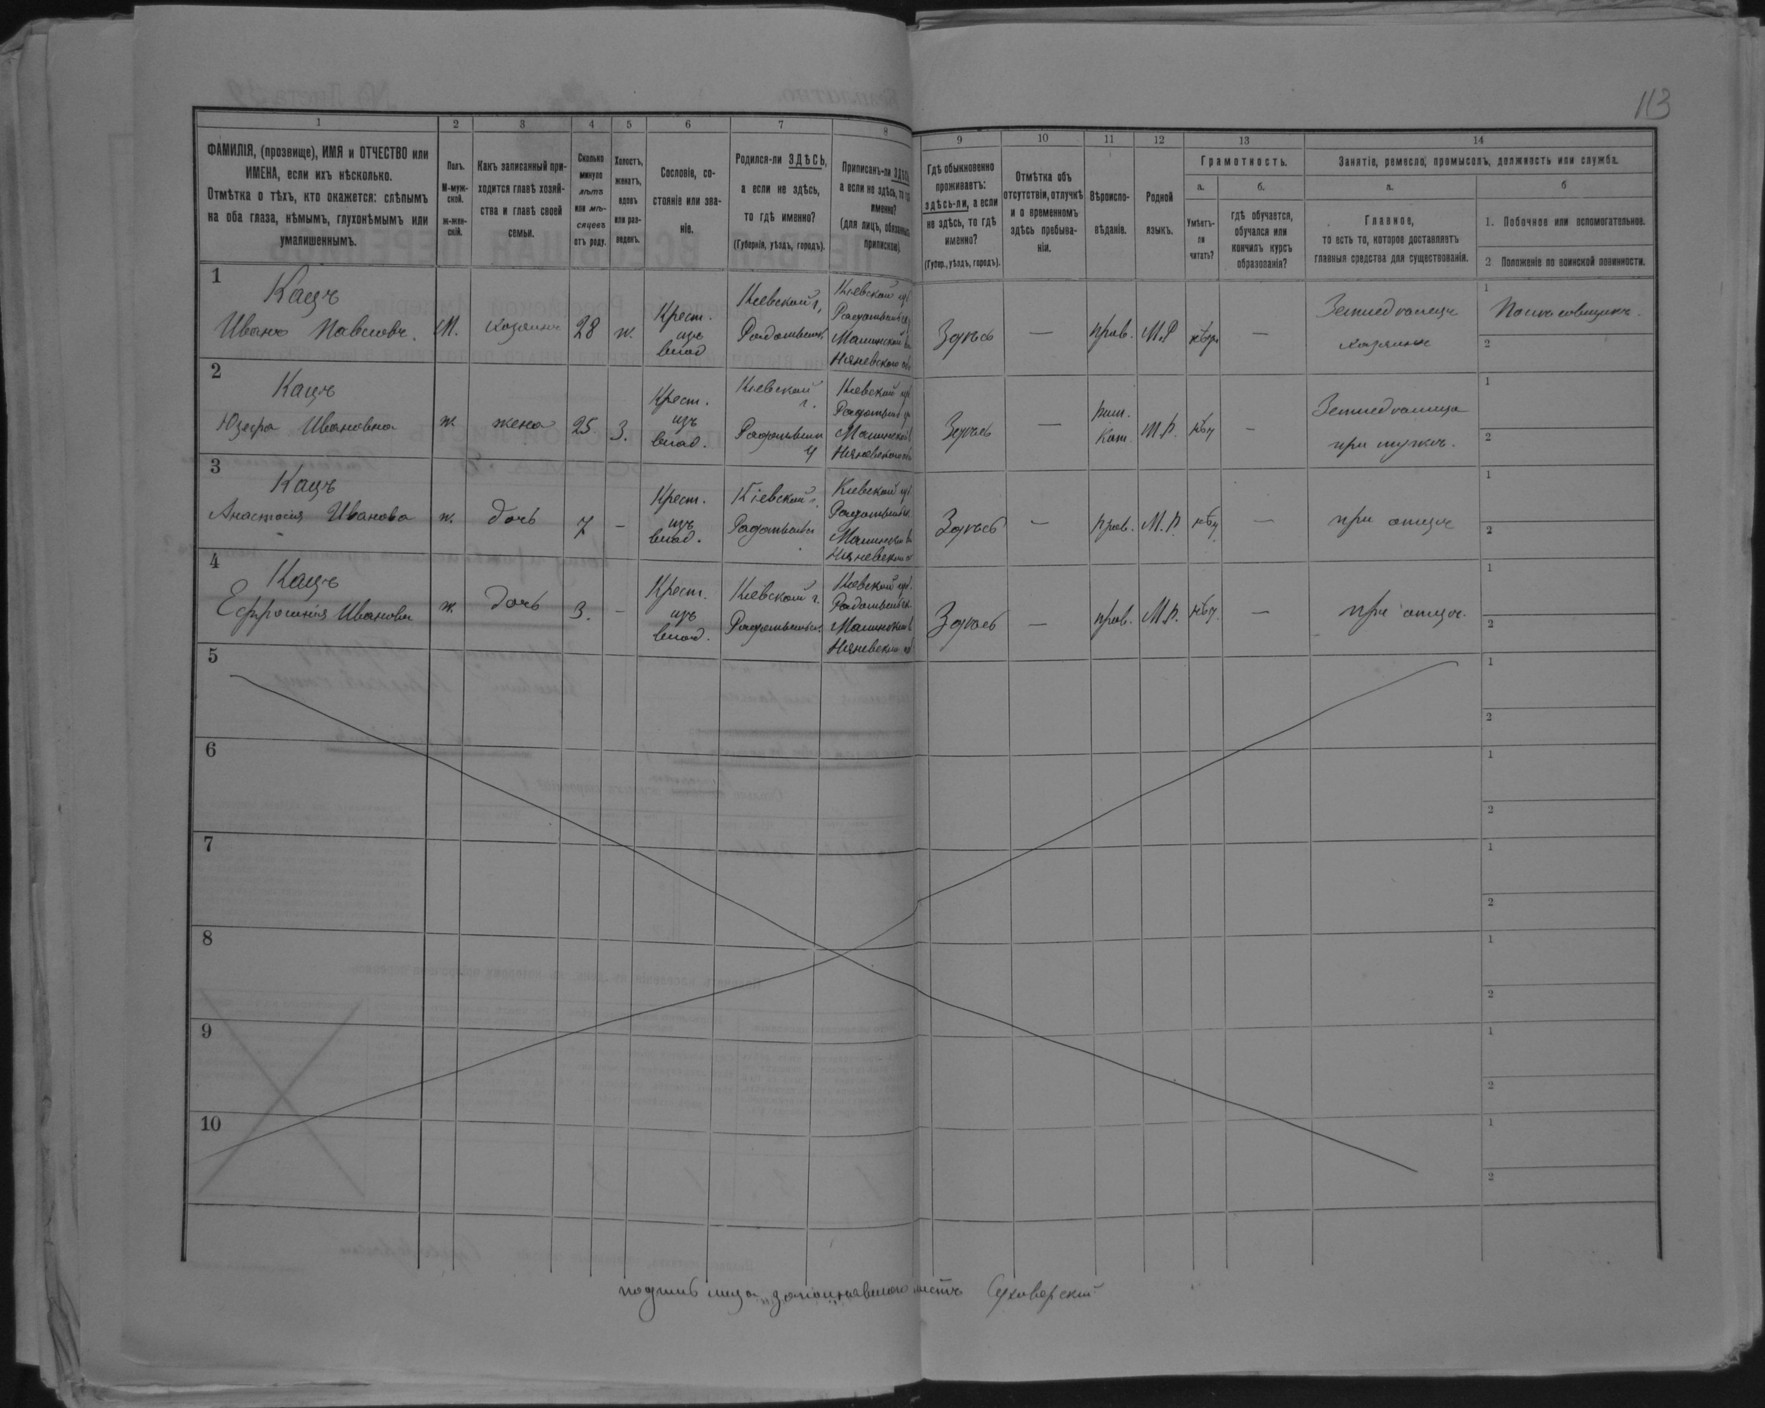 113
1
2
3
4
5
6
7
8
9
10
11
12
13
14
ФАМИЛІЯ, (прозвище), ИМЯ и ОТЧЕСТВО или
ИМЕНА, если ихъ нѣсколько.
Отмѣтка о тѣхъ, кто окажется: слѣпымъ
на оба глаза, нѣмымъ, глухонѣмымъ или
умалишеннымъ.
Полъ.
М-муж-
ской.
ж-жен-
скій.
Какъ записанный при-
ходится главѣ хозяй-
ства и главѣ своей
семьи.
Сколько
минуло
лѣтъ
или мѣ-
сяцевъ
отъ роду.
Холостъ,
женатъ,
вдовъ
или раз-
веденъ.
Сословіе, со-
стояніе или зва-
ніе.
Родился-ли ЗДѢСЬ,
а если не здѣсь,
то гдѣ именно?
(Губернія, уѣздъ, городъ).
Приписанъ-ли ЗДѢСЬ,
а если не здѣсь, то гдѣ
именно?
(для лицъ, обязанныхъ
припискою).
Гдѣ обыкновенно
проживаетъ:
здѣсь-ли, а если
не здѣсь, то гдѣ
именно?
(Губер., уѣздъ, городъ).
Отмѣтка объ
отсутствіи, отлучкѣ
и о временномъ
здѣсь пребыва-
ніи.
Вѣроиспо-
вѣданіе.
Родной
языкъ.
Грамотность.
а.
Умѣетъ-
ли
читать?
б.
гдѣ обучается,
обучался или
кончилъ курсъ
образованія?
Занятіе, ремесло, промыселъ, должность или служба.
а.
Главное,
то есть то, которое доставляетъ
главныя средства для существованія.
б
1. Побочное или вспомогательное.
2 Положеніе по воинской повинности.
1
Кацъ
Иванъ Павловъ.
М.
хозяинъ
28
ж.
Крест.
изъ
влад
Кіевской г,
Радомысльск.
Кіевской губ
Радомысльск
Малинской в
Здѣсь
—
прав.
М.Р
нѣтъ
—
Земледѣлецъ
хозяинъ
1
2
2
Кацъ
Юзефа Ивановна
ж
жена
25
З.
Крест.
изъ
влад.
Кіевской
г.
Радомысльск
у
Кіевской губ
Радомысльск у
Малинской в
Здѣсь
—
Рим.
Кат.
М.Р.
нѣт
—
Земледѣлица
при мужѣ.
1
2
3
Кацъ
Анастасія Иванова
ж.
дочь
7
—
Крест.
изъ
влад.
Кіевской г.
Радомысльск
Кіевской губ
Радомысльск.
Малинской в
Здѣсь
—
прав.
М.Р.
нѣт
—
при отцѣ
1
2
4
Кацъ
Ефросинія Иванова
ж.
дочь
3.
—
Крест.
изъ
влад.
Кіевской г.
Радомысльск
Кіевской губ.
Радомысльск.
Малинской в
Здѣсь
—
прав.
М.Р.
нѣт.
—
при отцѣ.
1
2
5
1
2
6
1
2
7
1
2
8
1
2
9
1
2
10
1
2
подпись лица, заполнявшаго листъ Суховерскій